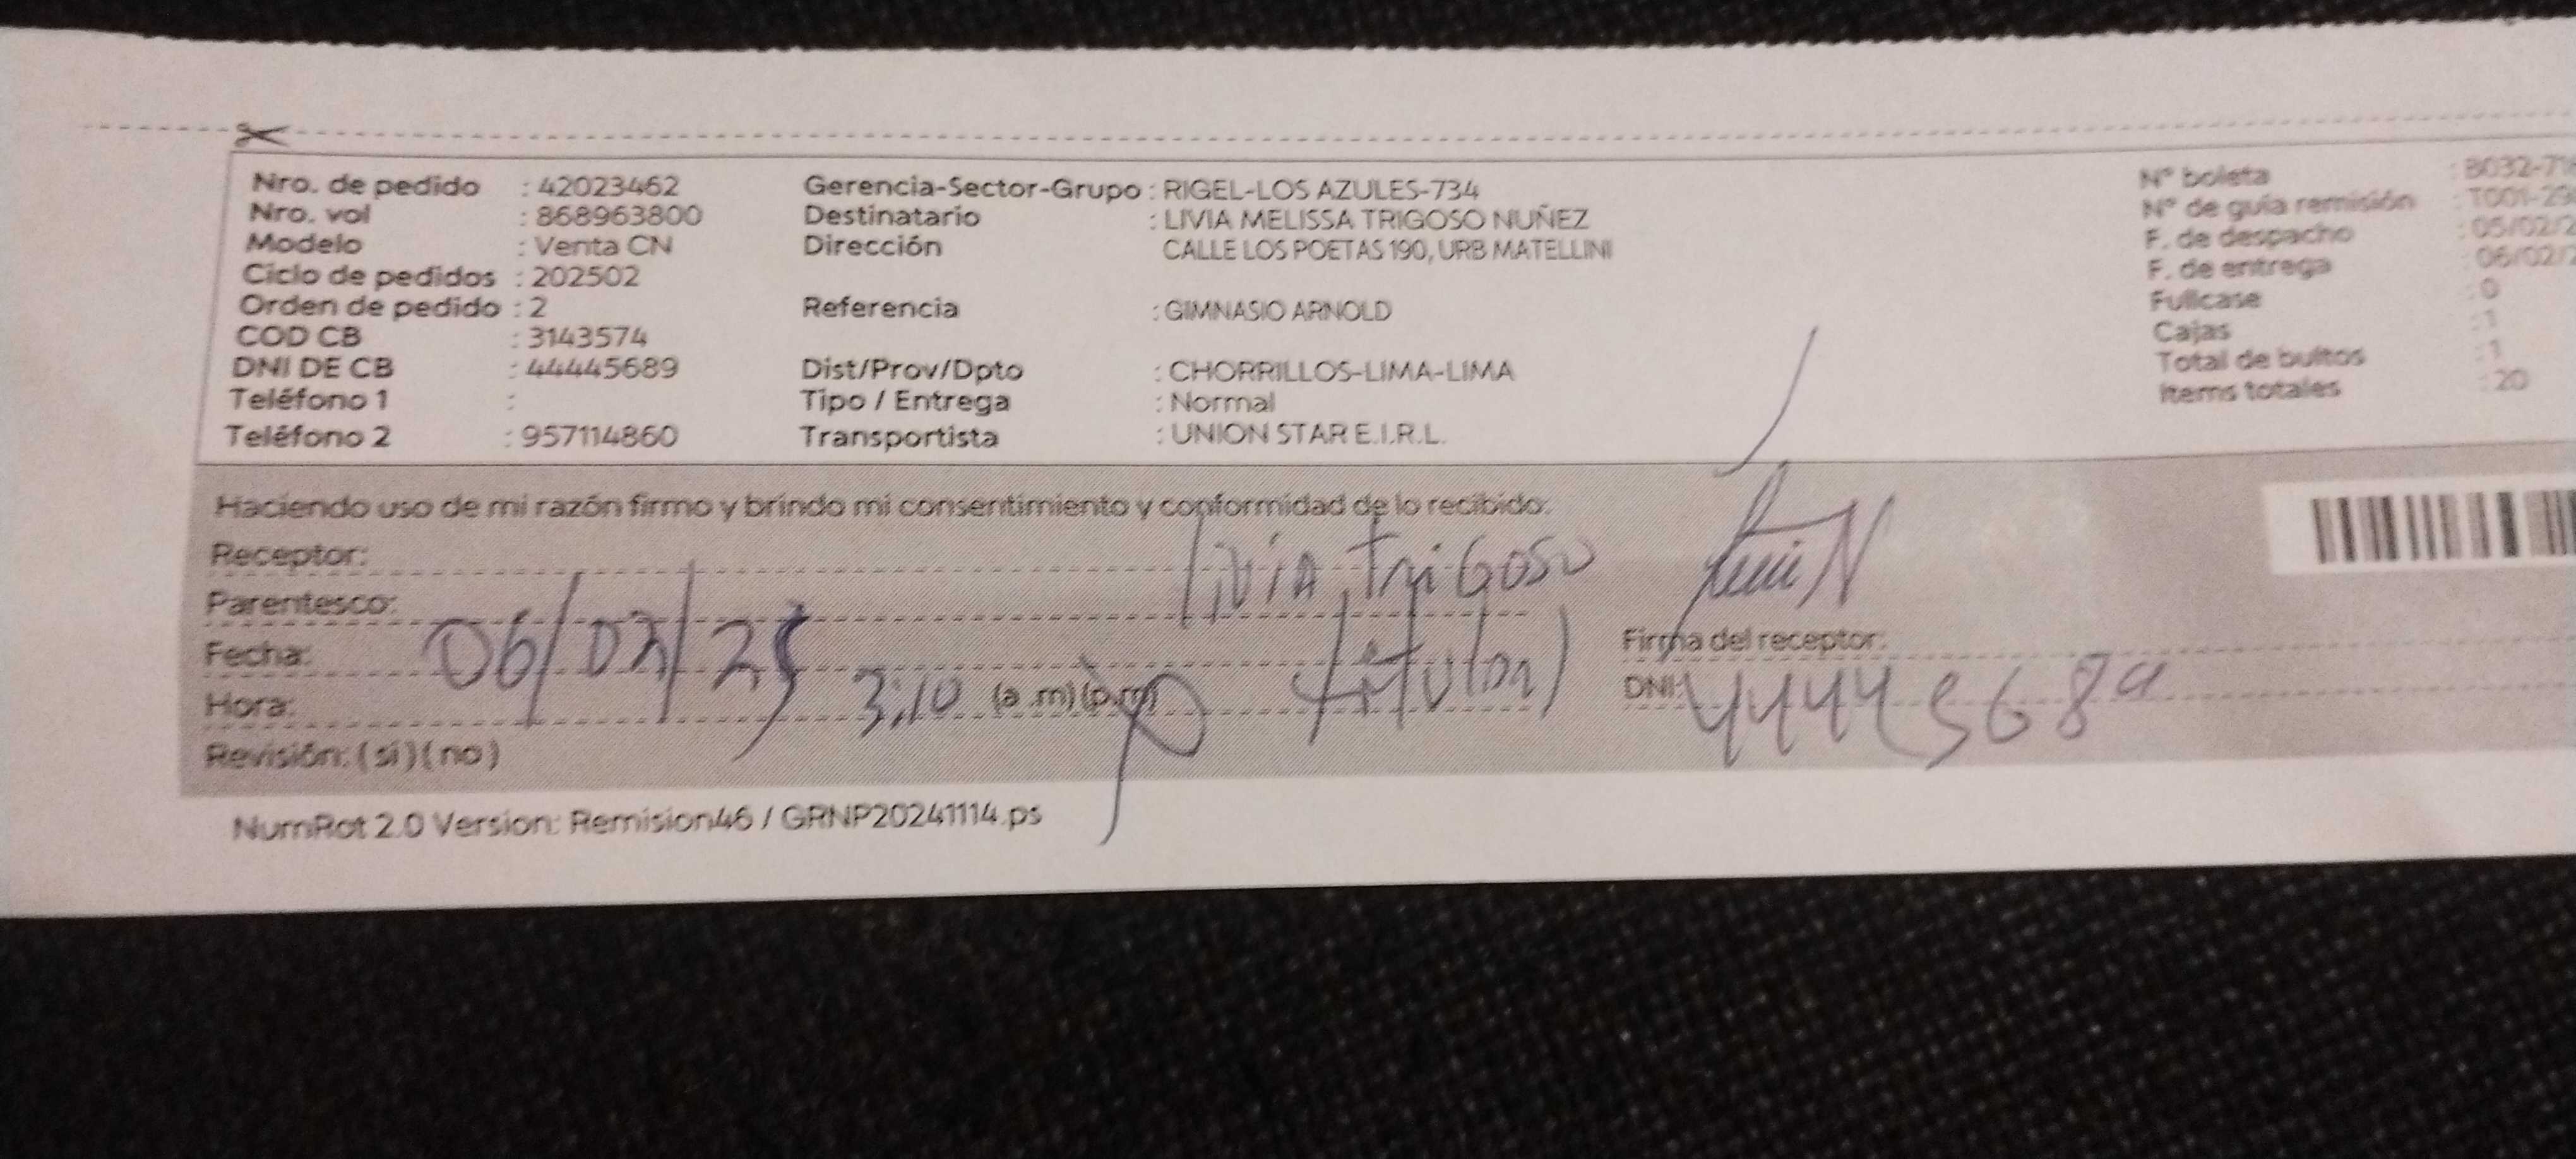 Nro. de pedido : 42023462 Gerencia-Sector-Grupo : RIGEL-LOS AZULES-734 N° boleta : B032-71
Nro. vol : 868963800 Destinatario : LIVIA MELISSA TRIGOSO NUÑEZ N° de guía remisión : T001-29
Modelo : Venta CN Dirección CALLE LOS POETAS 190, URB MATELLINI F. de despacho : 05/02/2
Ciclo de pedidos : 202502 F. de entrega : 06/02/2
Orden de pedido : 2 Referencia : GIMNASIO ARNOLD Fullcase : 0
COD CB : 3143574 Cajas : 1
DNI DE CB : 44445689 Dist/Prov/Dpto : CHORRILLOS-LIMA-LIMA Total de bultos : 1
Teléfono 1 : Tipo / Entrega : Normal Items totales : 20
Teléfono 2 : 957114860 Transportista : UNION STAR E.I.R.L.
Haciendo uso de mi razón firmo y brindo mi consentimiento y conformidad de lo recibido:
Receptor: Livia Trigoso
Parentesco: titular
Fecha: 06/02/25 Firma del receptor:
Hora: 3:10 (a .m)(p.m) DNI: 44445689
Revisión: (si)(no)
NumRot 2.0 Version: Remision46 / GRNP20241114.ps